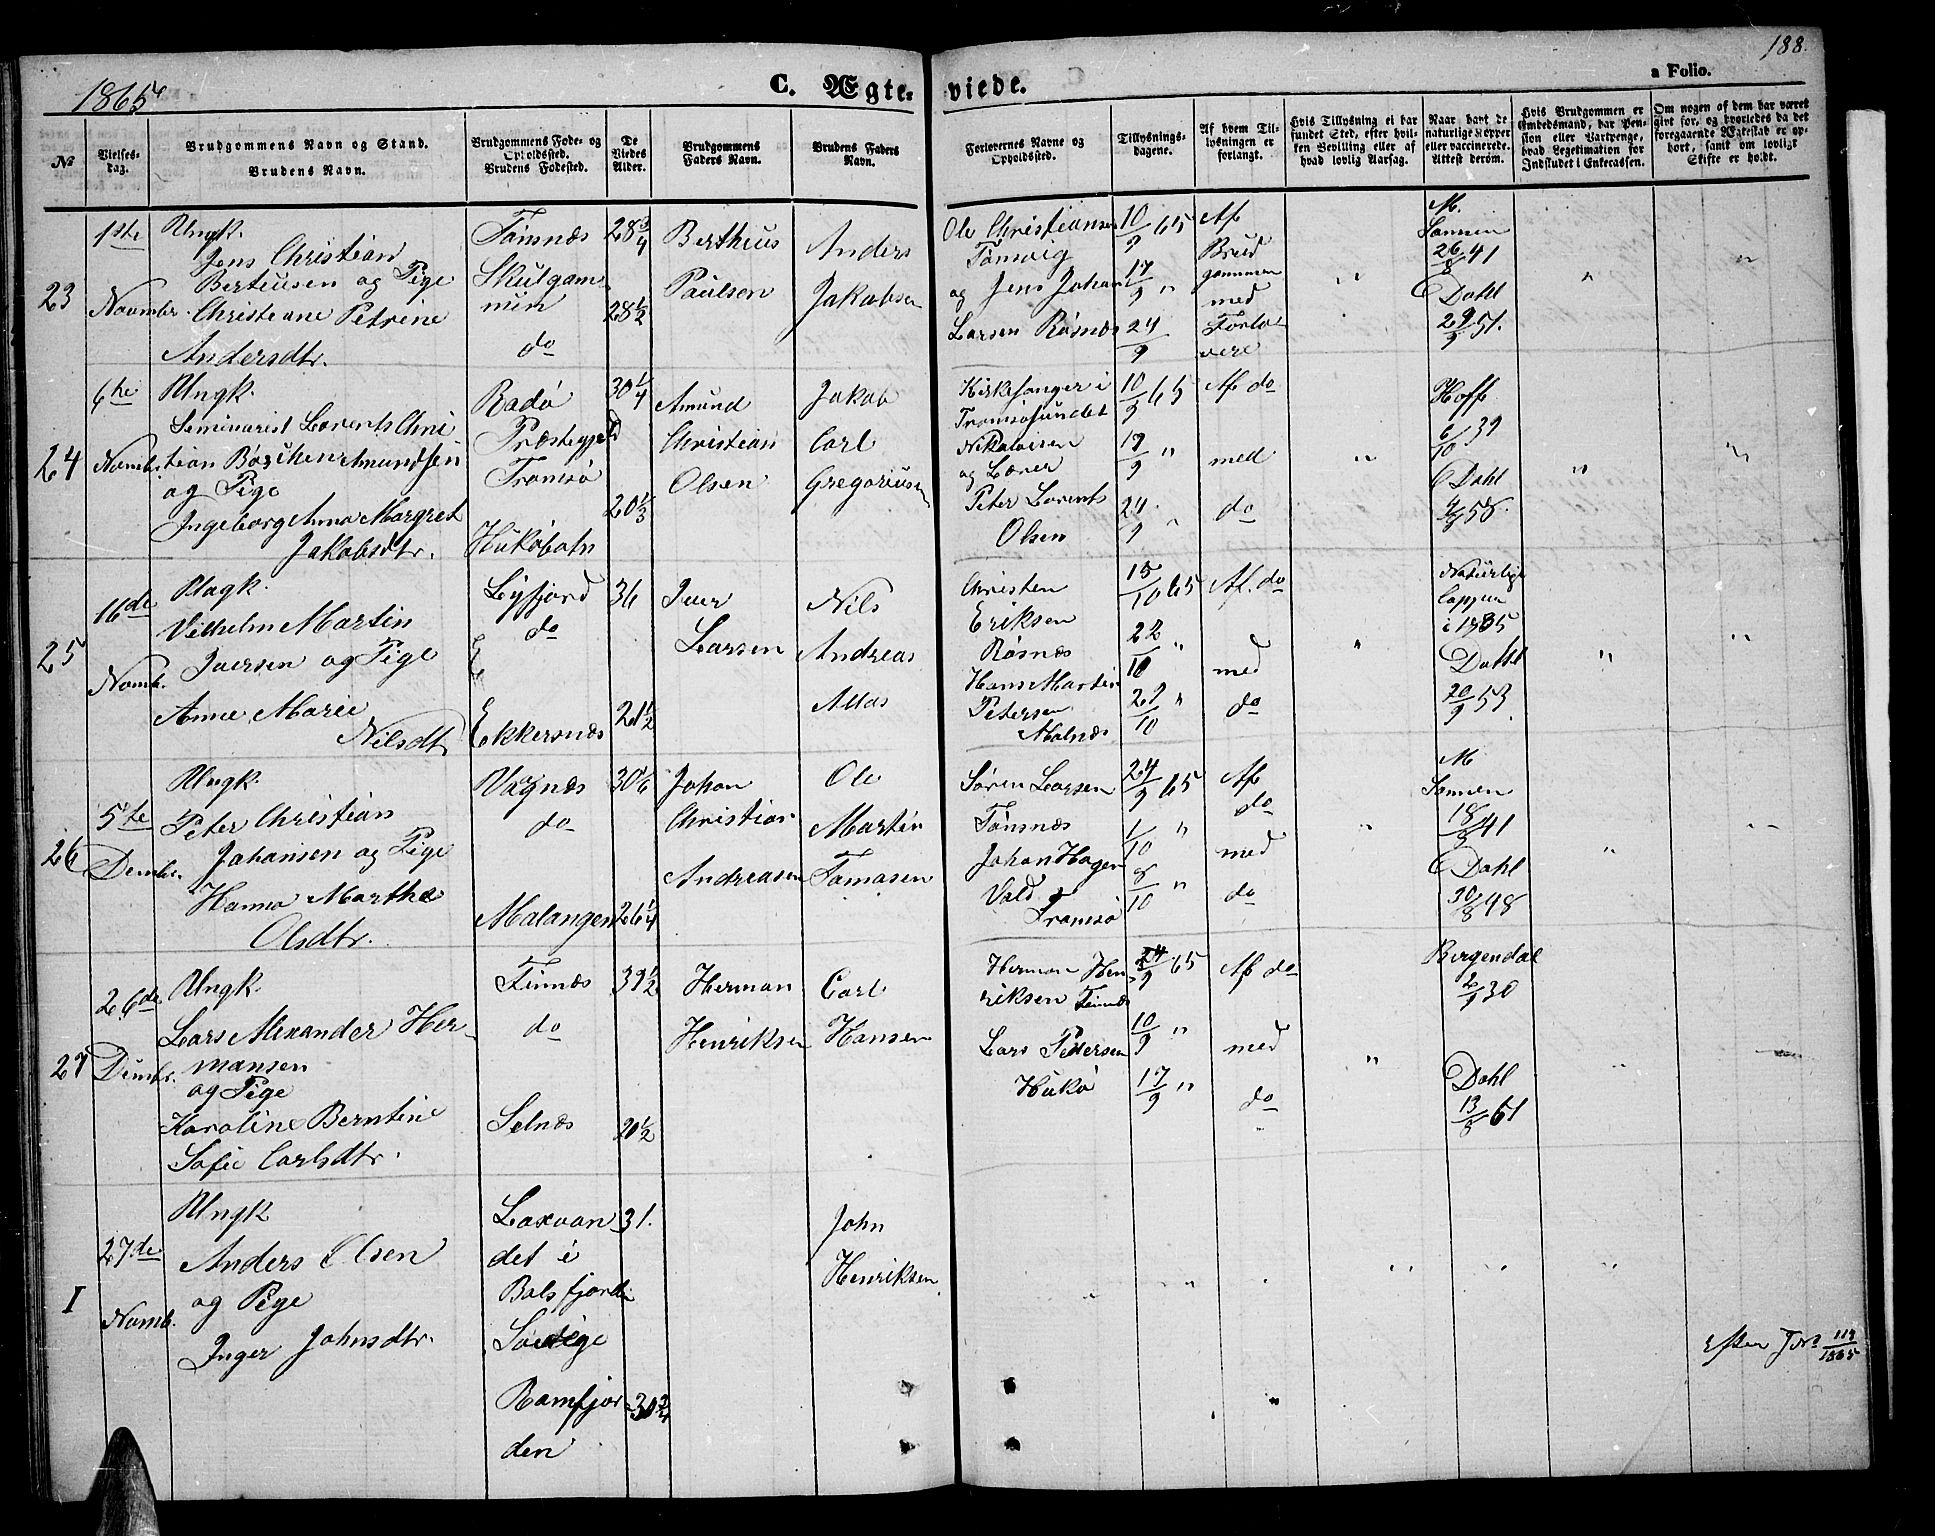 188.
1865
C. Ægte-
viede.
a Folio.
№
Vielses-
dag.
Brudgommens Navn og Stand.
Brudens Navn.
Brudgommens Føde- og
Opholdssted.
Brudens Fødested.
De
Viedes
Alder.
Brudgommens
Faders Navn.
Brudens Faders
Navn.
Forlovernes Navne og
Opholdssted.
Tillysnings-
dagene.
Af hvem Til-
lysningen er
forlangt.
Hvis Tillysning ei har
fundet Sted, efter hvil-
ken Bevilling eller af
hvad lovlig Aarsag.
Naar havt de
naturlige Kopper
eller vaccinerede.
Attest derom.
Hvis Brudgommen er
Embedsmand, har Pen-
sion eller Vartpenge,
hvad Legitimation for
Indskudet i Enkecassen.
Om nogen af dem har været
gift før, og hvorledes da det
foregaaende Ægteskab er op-
hørt, samt om lovligt
Skifte er holdt.
23
1ste
Novmbr.
Ungk.
Jens Christian
Berteusen og Pige
Christiane Petrine
Andersdtr.
Tønsnæs
Skulgam-
num
do
28 3/4
28 1/2
Bertheus
Paulsen
Anders
Jakobsen
Ole Christiansen
Tønsvig
og Jens Johan
Larsen Røsnæs
10/9 65
17/9 "
24/9
Af
Brud
gommen
med
Forlo-
vere
"
M.
Sannen
26/8 41
C Dahl
29/9 51.
"
"
24
6te
Novmb.
Ungk.
Seminarist Lorents Chri
tian Boschen Amundsen
og Pige
Ingeborg Anna Margret
Jakobsdtr.
Radø
Præstegjeld
Tromsø
Hukøbotn
30 1/4
20 1/3
Amund
Christian
Olsen
Jakob
Carl
Gregoriusen
Kirkesanger i
Tromsøsundet
Nikolaisen
og Lærer
Peter Lorents
Olsen
10/9 65
17/9 "
24/9 "
Af do
med
do
"
Hoff
6/10 39
C Dahl
58.
"
"
25
16de
Novmb.
Ungk.
Vilhelm Martin
Iversen og Pige
Anne Marie
Nilsdt.
Lyfjord
do
Ekkersnæs
36
21 1/2
Iver
Larsen
Nils
Andreas
Aslas
Christen
Eriksen
Røsnæs
Hans Martin
Petersen
Malnæs
15/10 65
22/10 "
29/10 "
Af. do
med
do
"
Naturlige
Copper
i 1835
Dahl
20/9 53.
"
"
26
5te
Dembr.
Ungk.
Peter Christian
Johansen og Pige
Hanna Martha
Olsdtr.
Vagnæs
do
Malangen
30 1/6
26 1/4
Johan
Christian
Andreasen
Ole
Martin
Tomasen
Søren Larsen
Tønsnæs
Johan Hagen
Vold
Tromsø
24/9 65
1/10 "
8/10 "
Af
do
med
do
"
M
Sannen
18/8 41
C Dahl
30/8 48
"
"
27
26de
Dembr.
Ungk.
Lars Alexander Her-
mansen
og Pige
Karoline Berntine
Sofie Carlsdtr.
Finnæs
do
Selnæs
39 1/2
20 1/2
Herman
Henriksen
Carl
Hansen
Herman Hen-
riksen Finnæs
Lars Pettersen
Hukø
24/9 65
10/9 "
17/9 "
Af do
med
do
"
Bergendal
2/9 30
Dahl
13/8 61
I
27de
Novmb.
Ungk
Anders Olsen
og Pige
Inger Johnsdtr.
Laxvan
det i
Balsfjord
Ramfjor
den
31.
30 3/4
John
Henriksen
"
"
"
"
"
"
Efter Jr. 119/1865